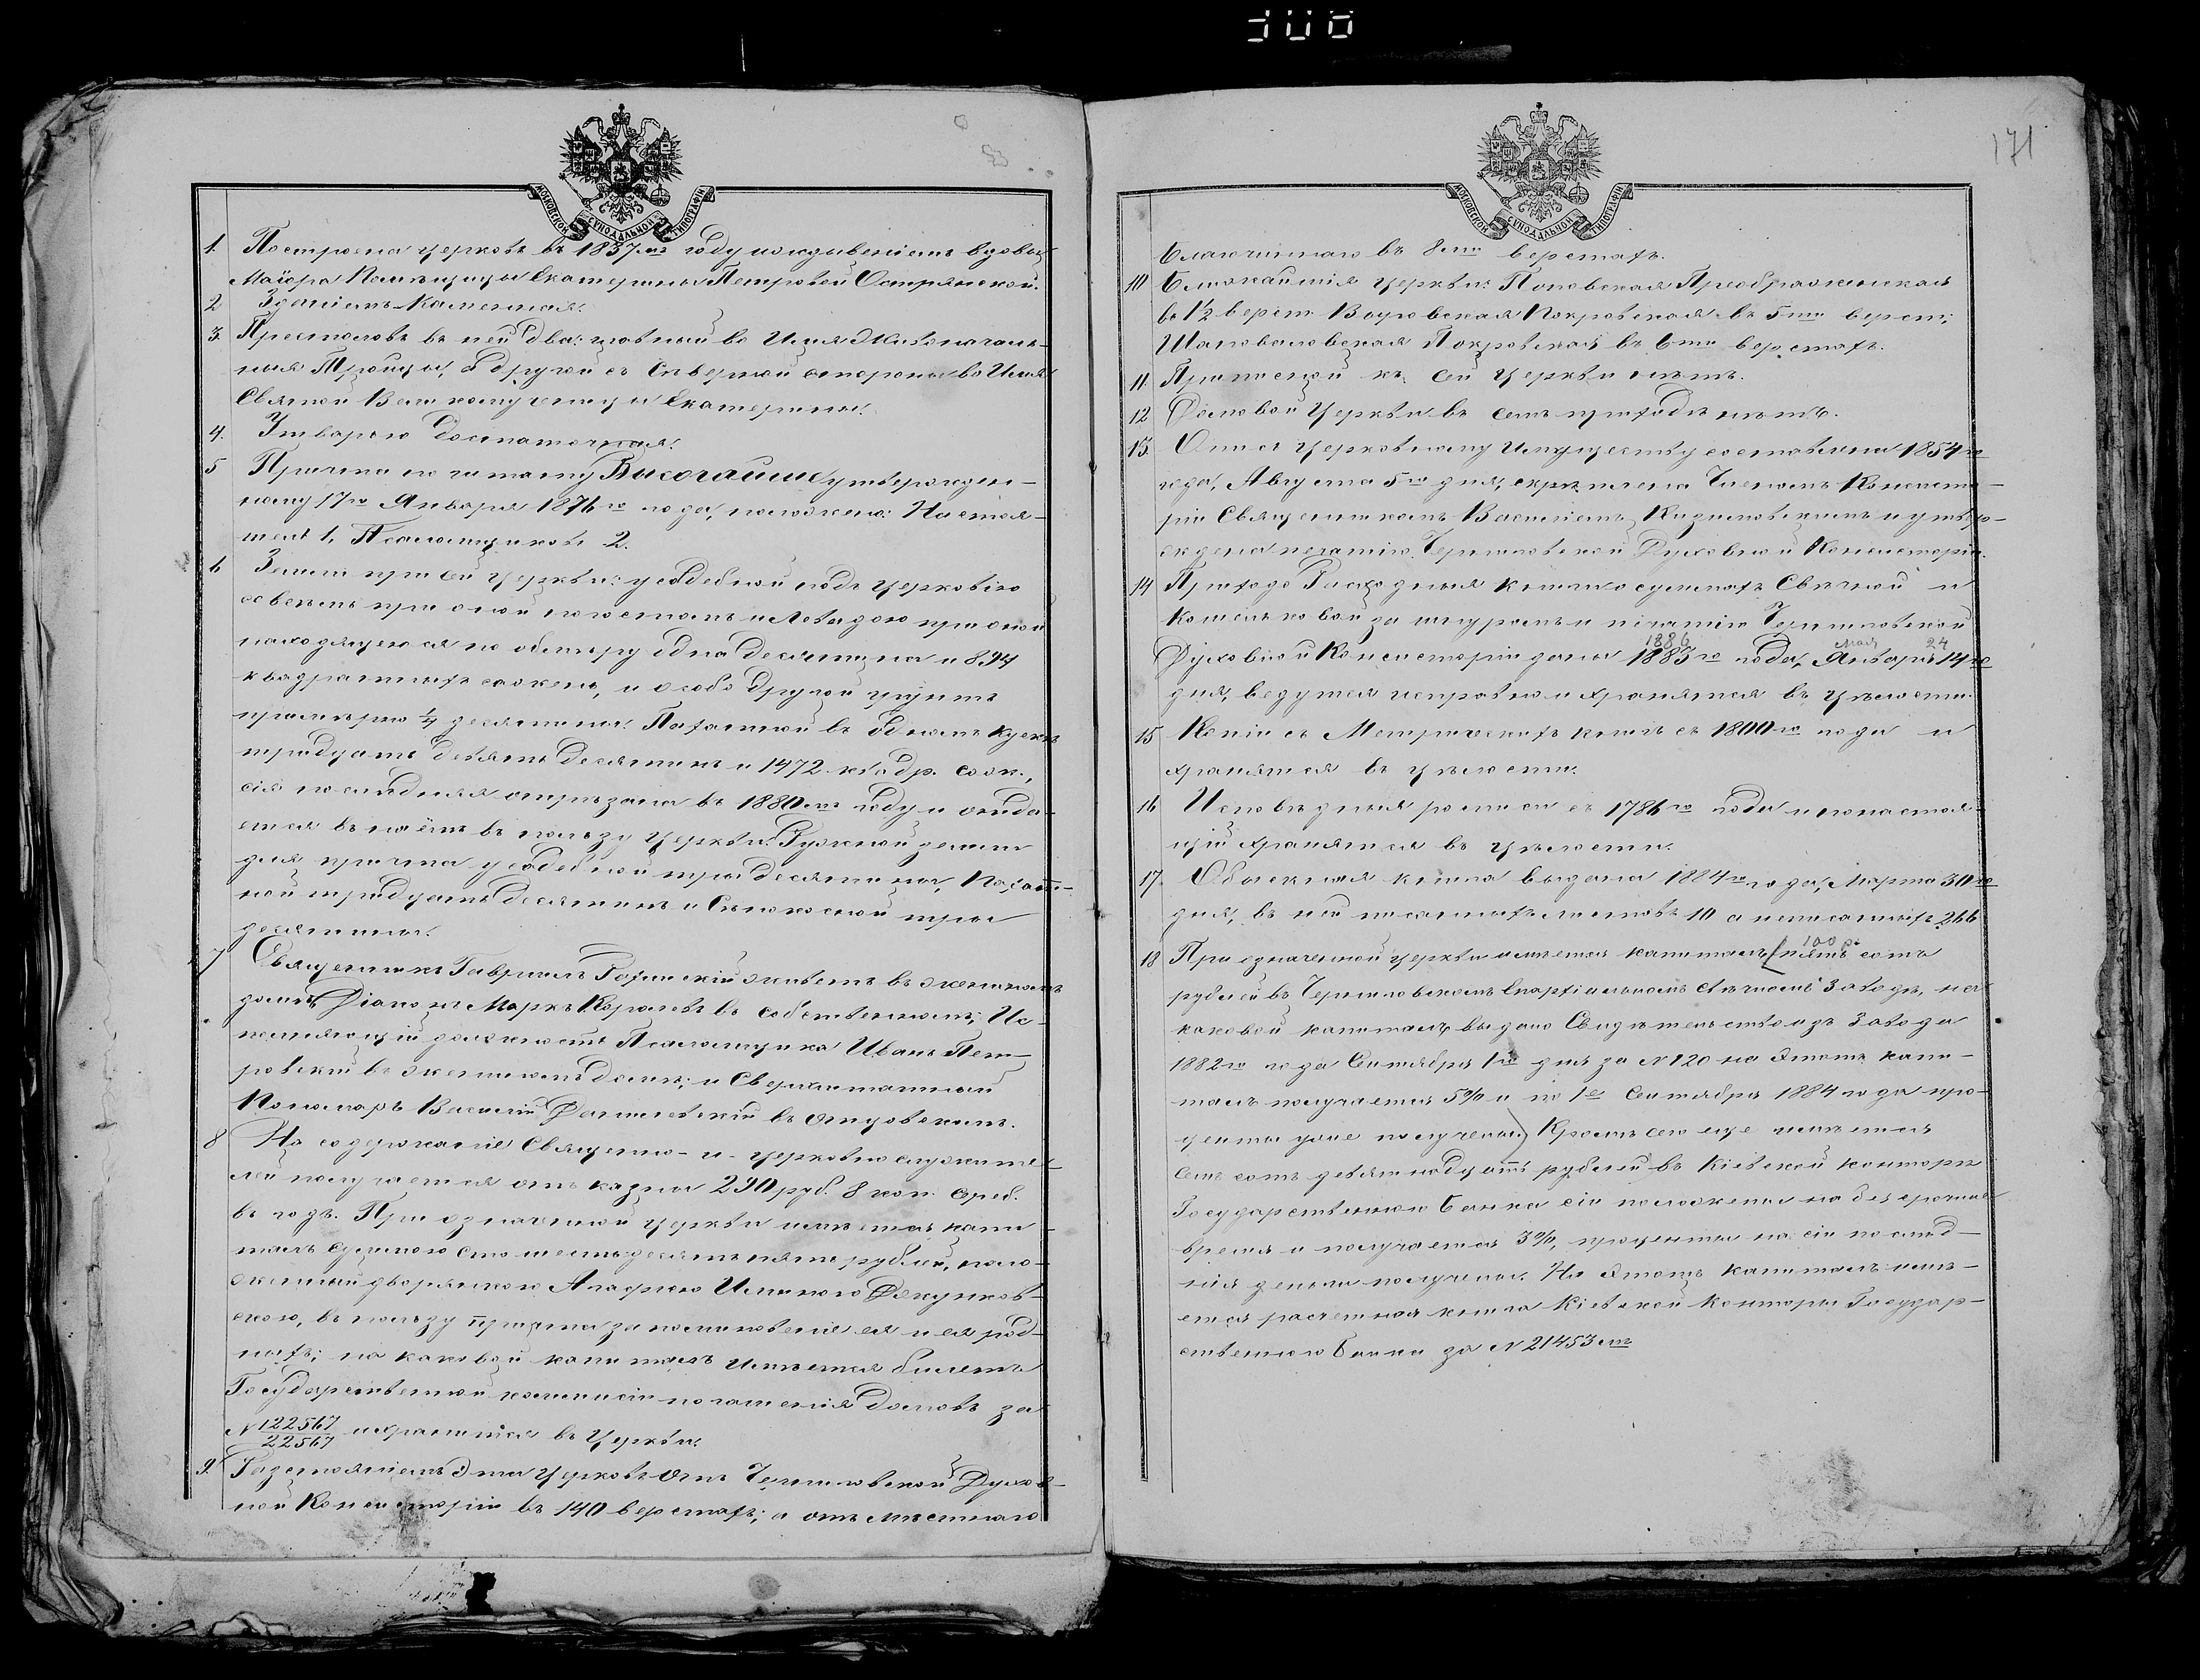 171
МОСКОВСКОЙ СИНОДАЛЬНОЙ ТИПОГРАФІИ
1. Построена церковь въ 1837мъ году иждивеніемъ вдовы
Маіора Помѣщицы Екатерины Петровой Острянской.
2 Зданіемъ Каменная.
3. Престоловъ въ ней два: главный во Имя Живоначаль-
ныя Троицы, а другой съ Сѣверной стороны во Имя
Святой Великомученицы Екатерины.
4. Утварью достаточная.
5 Причта по читаному Высочайше утвержден-
ному 17го Января 1876го года, положено: Настоя-
тель 1, Псаломщиковъ 2.
6 Земли при сей церкви: усадебной подъ церковію
совсемъ при оной погостомъ и Левадою при оной
находящеюся по обмѣру одна десятина и 894
квадратныхъ сажень, и особо другой грунтъ
примѣрно 1/4 десятины. Пахатной въ одномъ куске
тридцать девять десятинъ и 1472 квадр. саж.,
сія послѣдняя отрѣзана въ 1880мъ году и отда-
ется въ наёмъ въ пользу церкви. Ружной земли
для причта усадебной три десятины, Пахат-
ной тридцать десятинъ и Сѣнокосной три
десятины.
7 Священникъ Гавріилъ живетъ въ
домѣ, Діаконъ Маркъ Королевъ въ собственномъ; Ис-
полняющій должность Псаломщика Иванъ Пет-
ровскій въ домѣ; и Сверхштатный
Пономарь Василій Данилевскій въ отцовскомъ.
8 На содержаніе Священно-и-церковнослужите-
лей получается отъ казны 290 руб. 8 коп. Сереб.
въ годъ. При означенной церкви имѣется капи-
талъ суммою сто шестьдесятъ пять рублей, поло-
женный дворянкою Агафіею
въ пользу причта за поминовеніе ея и ея род-
ныхъ; на каковой капиталъ имѣется билетъ
Государственной коммисіи погашенія долговъ за
N 122567/22567 и хранится въ Церкви.
9. Разстояніемъ эта церковь отъ Черниговской Духов-
ной Консисторіи въ 140 верстахъ; а отъ мѣстнаго
МОСКОВСКОЙ СИНОДАЛЬНОЙ ТИПОГРАФІИ
Благочиннаго въ 8ми верстахъ.
10 Ближайшія церкви: Поповская Преображенская
въ 1½ верст. Покровская въ 5ти верст;
Шаповаловская Покровская въ 6ти верстахъ.
11. Приписной къ сей церкви нѣтъ.
12 Домовой церкви въ семъ приходѣ нѣтъ.
13. Опись церковному имуществу составлена 1854го
года, Августа 5го дня, скрѣплена Членомъ Консисто-
ріи Священникомъ Василіемъ и утвер-
ждена печатію Черниговской Духовной Консисторіи.
14 Приходо Расходныя книги о суммахъ Свѣчной и
Кошельковой за шнуромъ и печатію Черниговской
1886 Мая 24
Духовной Консисторіи даны 1883го года, Января 14го
дня, ведутся исправно и хранятся въ цѣлости.
15 Копіи съ Метрическихъ книгъ съ 1800го года и
хранятся въ цѣлости.
16 Исповѣдныя росписи съ 1786го года и по настоя-
щій хранятся въ цѣлости.
17. Обыскная книга выдана 1884го года, Марта 30го
дня, въ ней писанныхъ листовъ 10 а неписанныхъ 266
100 р.
18 При означенной церкви имѣется капиталъ (пять сотъ
рублей въ Черниговскомъ Епархіальномъ свѣчномъ Заводѣ, на
каковой капиталъ выдано Свидѣтельство изъ Завода
1882го года Сентября 1го дня за N 120 на этотъ капи-
талъ получается 5% и по 1е Сентября 1884 года про-
центы уже получены) Кромѣ сего еще имѣется
семъ сотъ девятнадцать рублей въ Кіевской конторѣ
Государственнаго Банка сіи положены на безсрочное
время и получается 3%, проценты на сіи послѣд-
нія деньги получены. На этотъ капиталъ имѣ-
ется расчетная книга Кіевской Конторы Государ-
ственнаго Банка за N 21453мъ